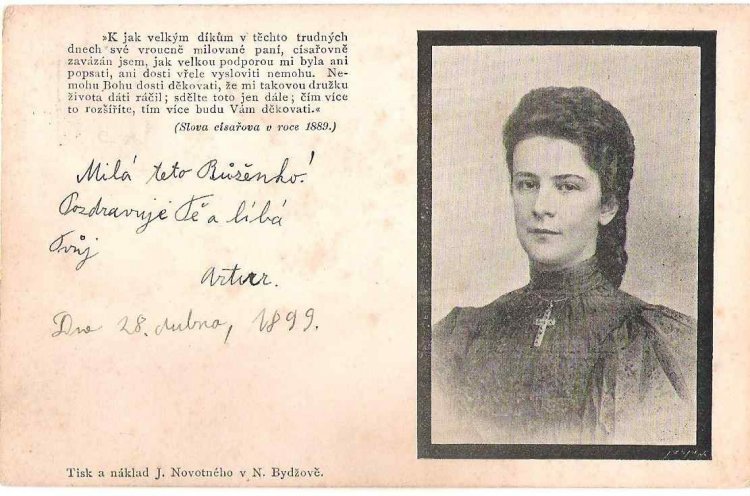 »K jak velkým díkům v těchto trudných
dnech své vroucně milované paní, císařovně
zavázán jsem, jak velkou podporou mi byla ani
popsati, ani dosti vřele vysloviti nemohu. Ne-
mohu Bohu dosti děkovati, že mi takovou družku
života dáti ráčil; sdělte toto jen dále; čím více
to rozšíříte, tím více budu Vám děkovati.«
(Slova císařova v roce 1889.)
Milá teto Růženko!
Pozdravuje Tě a líbá
Tvůj
Artur.
Dne 28. dubna, 1899.
Tisk a náklad J. Novotného v N. Bydžově.